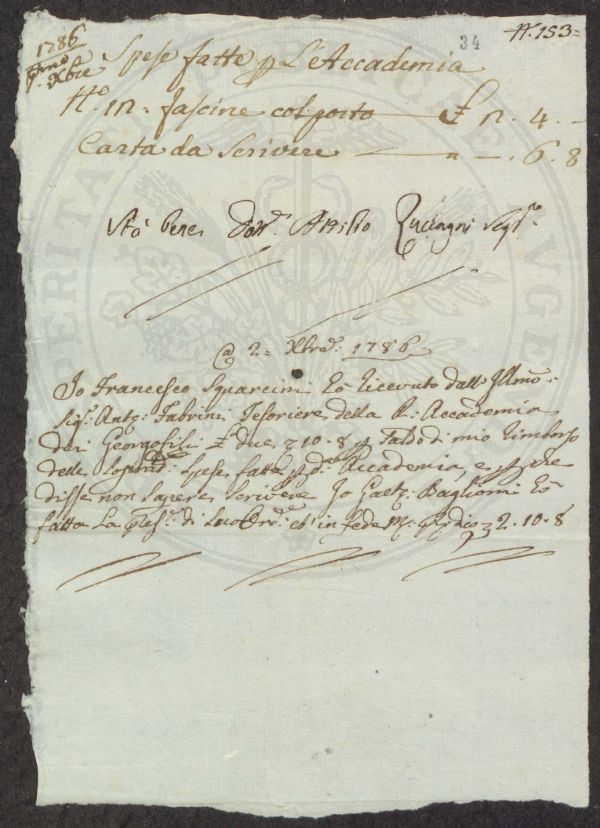 34
N. 153=
1786
Pmo Xbre
Spese fatte p L'Accademia
No. 12= fascine col porto £ 2. 4. -
Carta da Scrivere " -. 6. 8
Stà bene Dott. Attilio Zuccagni Segr.
@ 2= Xbre. 1786
Io Francesco Squarcini Eò ricevuto dall'Illmo:
Sig. Anto: Fabrini Tesoriere della R: Accademia
dei Georgofili £ due, 10. 8 p Saldo di mio rimborso
delle Soprad. Spese fatte p d. Accademia, e p che
disse non sapere Scrivere Io Gaet: Baglioni Eò
fatto La pres. di suo Ord. et in fede M: pp dico 2. 10. 8